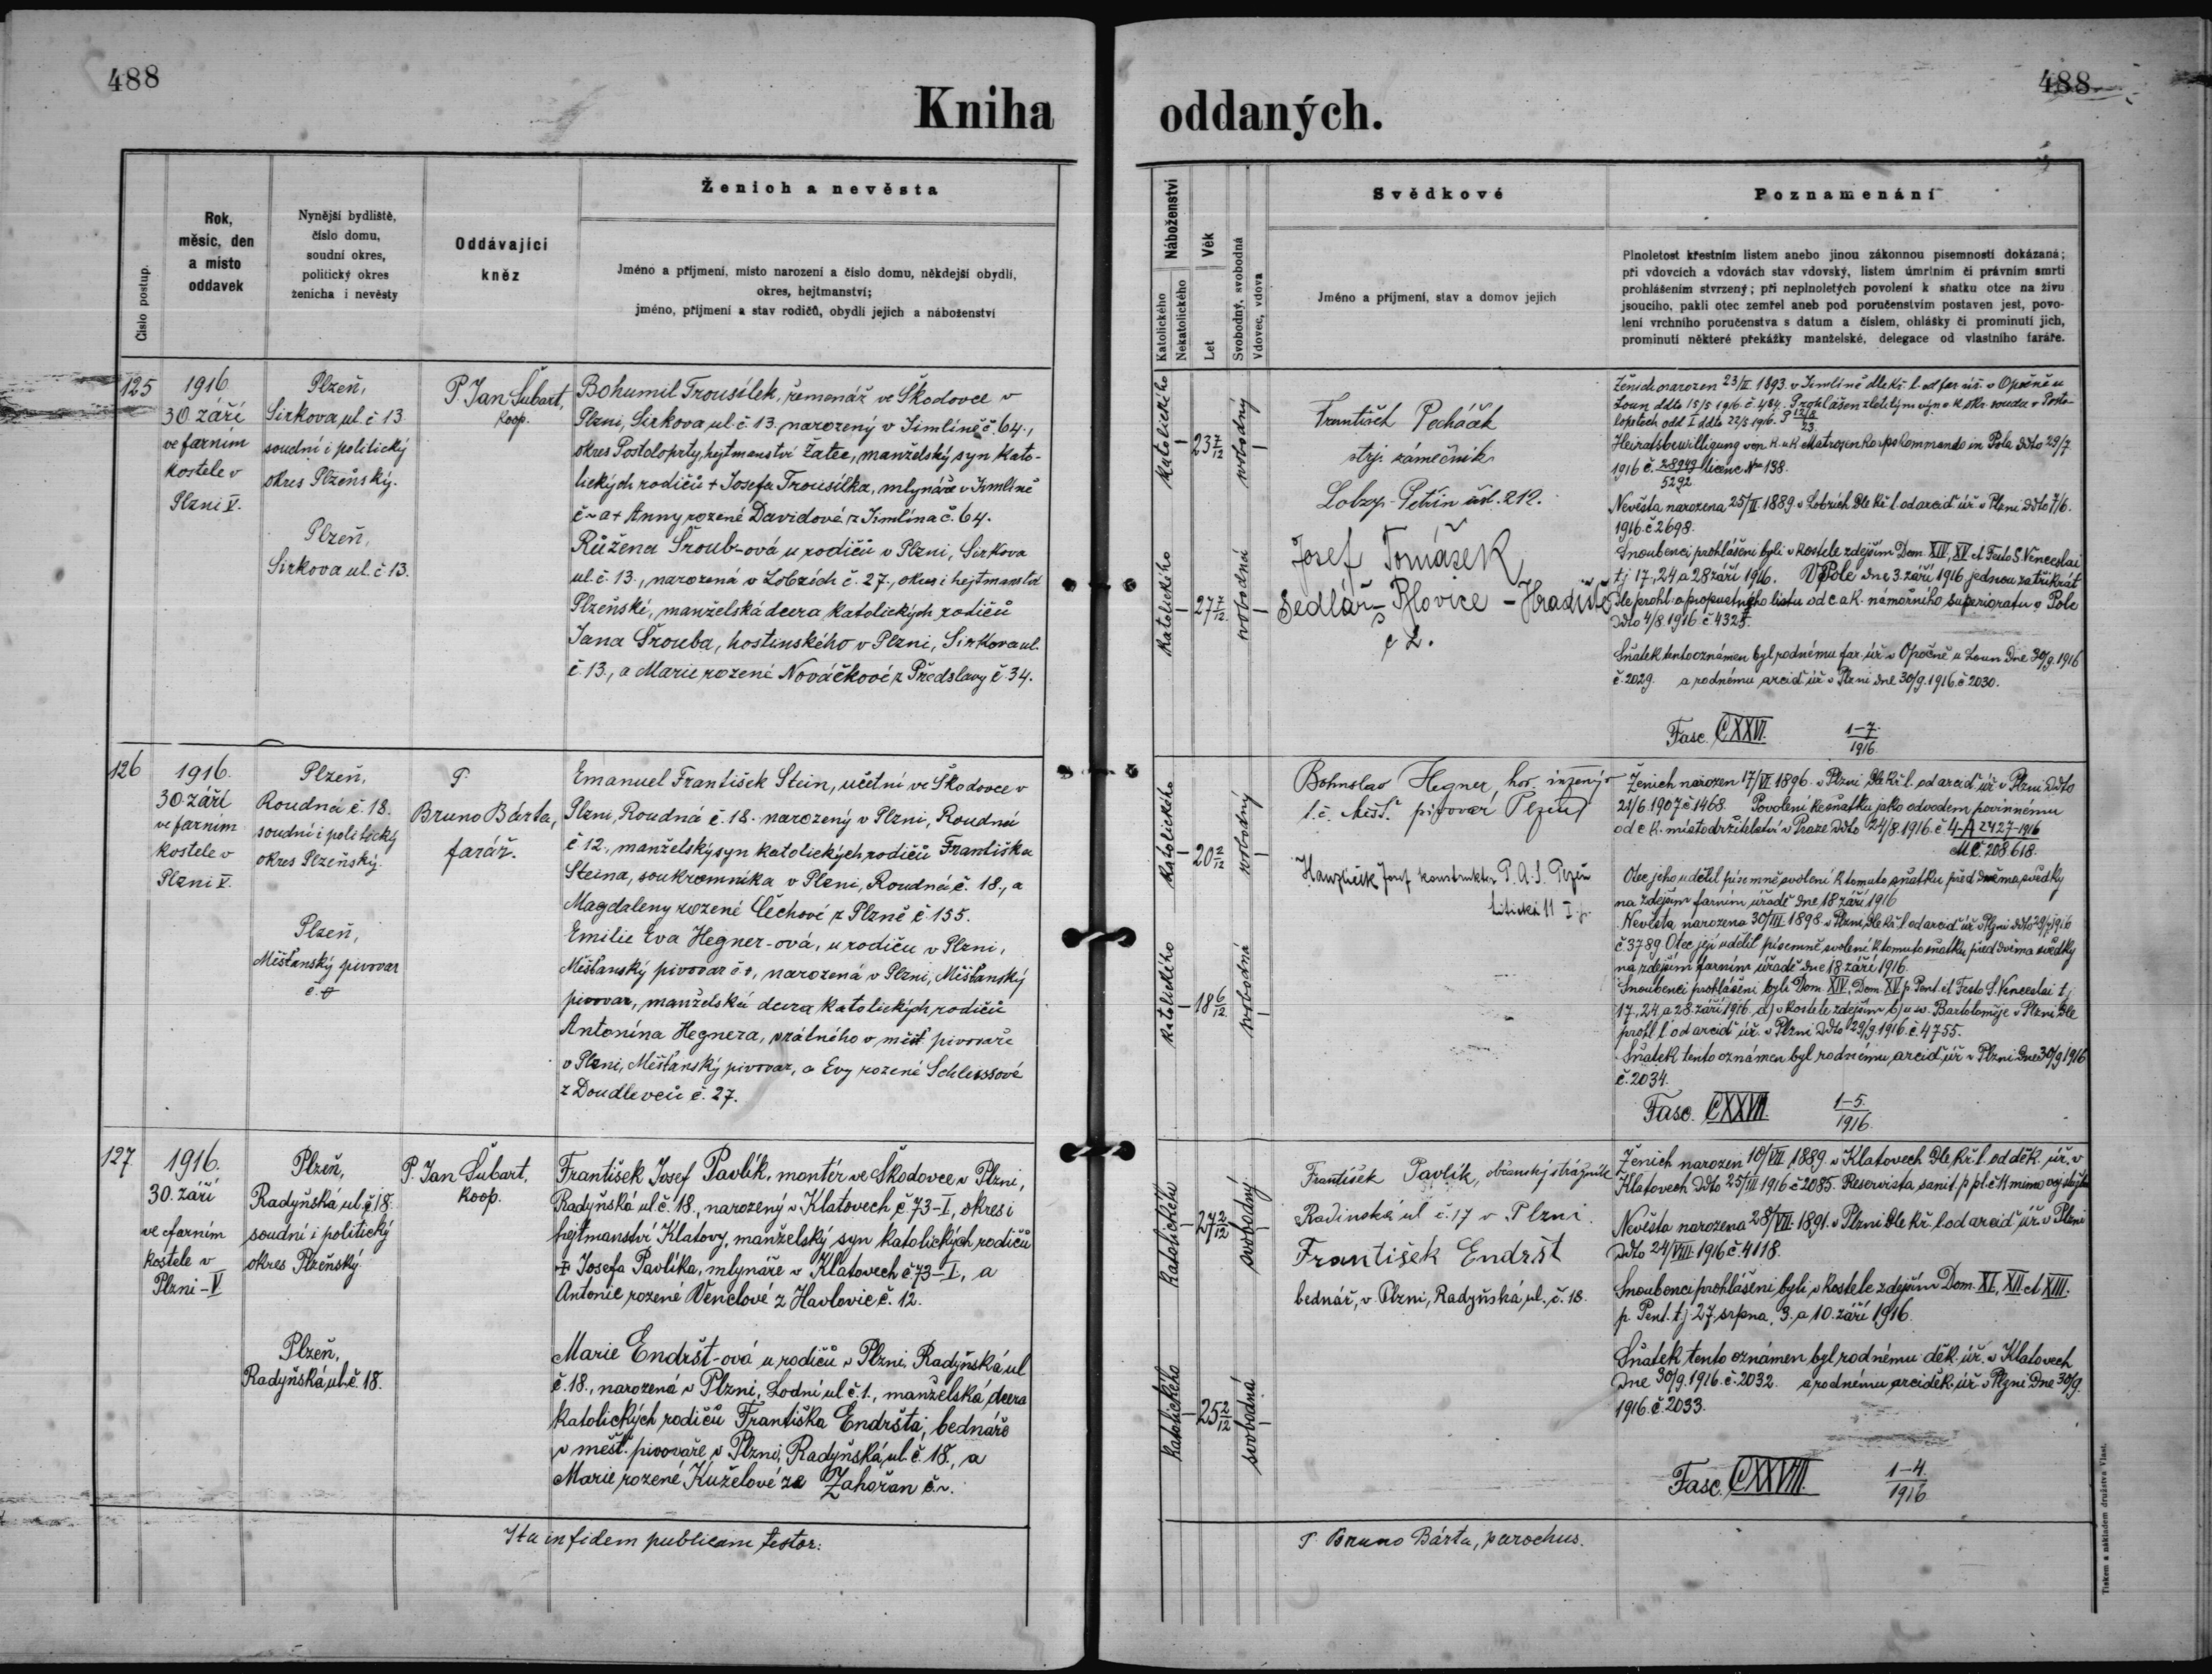 488
488
Kniha oddaných.
Číslo postup.
Rok,
měsíc, den
a místo
oddavek
Nynější bydliště,
číslo domu,
soudní okres,
politický okres
ženicha i nevěsty
Oddávající
kněz
Ženich a nevěsta
Jméno a příjmení, místo narození a číslo domu, někdejší obydlí,
okres, hejtmanství;
jméno, příjmení a stav rodičů, obydlí jejich a náboženství
Náboženství
Katolického
Nekatolického
Věk
Let
Svobodný, svobodná
Vdovec, vdova
Svědkové
Jméno a příjmení, stav a domov jejich
Poznamenání
Plnoletost křestním listem anebo jinou zákonnou písemností dokázaná;
při vdovcích a vdovách stav vdovský, listem úmrtním či právním smrti
prohlášením stvrzený; při neplnoletých povolení k sňatku otce na živu
jsoucího, pakli otec zemřel aneb pod poručenstvím postaven jest, povo-
lení vrchního poručenstva s datum a číslem, ohlášky či prominutí jich,
prominutí některé překážky manželské, delegace od vlastního faráře.
125
1916
30. září
ve farním
kostele v
Plzni V.
Plzeň,
Sirkova ul. č 13
soudní i politický
okres Plzeňský.
Plzeň,
Sirkova ul. č 13.
P. Jan Šubart,
koop.
Bohumil Trousílek, řemenář ve Škodovce v
Plzni, Sirkova ul. č 13. narozený v Jimlíně č. 64.,
okres Postoloprty, hejtmanství Žatec, manželský syn kato-
lických rodičů + Josefa Trousílka, mlynáře v Jimlíně
č ~ a + Anny rozené Davidové z Jimlína č. 64.
Růžena Šroub-ová u rodičů v Plzni, Sirkova
ul. č. 13., narozená v Lobzích č. 27., okres i hejtmanství
Plzeňské, manželská dcera katolických rodičů
Jana Šrouba, hostinského v Plzni, Sirkova ul.
č. 13., a Marie rozené Nováčkové z Předslavy č. 34.
katolického
23 7/12
svobodný
katolického
27 7/12
svobodná
František Pecháček
stroj. zámečník
Lobzy-Petřín čísl. 212.
Josef Tomášek
Sedlář - Plovice - Hradiště
č 2.
Ženich narozen 23/II. 1893. v Jimlíně dle kř. l. od far. úř. v Opočně u
Loun ddto 15/5 1916. č 484. Prohlášen zletilým výn. c k okr. soudu v Posto-
loprtech odd I ddto 22/5 1916. P 12/8 23.
Heiratsbewilligung von k. u k Matrosenkorpskommando in Pola ddto 29/7
1916 č. 28949/5292 licenc No 138.
Nevěsta narozena 25/II. 1889. v Lobzích dle kř. l. od arciď úř. v Plzni ddto 7/6.
1916. č 2698.
Snoubenci prohlášeni byli v kostele zdejším Dom. XIV, XV et Festo S. Venceslai
tj 17., 24 a 28 září 1916. V Pole dne 3. září 1916 jednou za třikrát
dle prohl. a propustného listu od c a k. námořního superioratu v Pole
ddto 4/8. 1916 č 4325.
Sňatek tento oznámen byl rodnému far. úř. v Opočně u Loun dne 30/9. 1916
č. 2029. a rodnému arciď úř. v Plzni dne 30/9. 1916. č 2030.
Fasc. CXXVI. 1-7./1916
126
1916.
30. září
ve farním
kostele v
Plzni V.
Plzeň,
Roudná č. 18.
soudní i politický
okres Plzeňský.
Plzeň,
Měšťanský pivovar
P.
Bruno Bárta,
farář.
Emanuel František Stein, účetní ve Škodovce v
Plzni, Roudná č. 18. narozený v Plzni, Roudná
č 12., manželský syn katolických rodičů Františka
Steina, soukromníka v Plzni, Roudná č. 18., a
Magdaleny rozené Čechové z Plzně č. 155.
Emilie Eva Hegner-ová, u rodičů v Plzni,
Měšťanský pivovar č +, narozená v Plzni, Měšťanský
pivovar, manželská dcera katolických rodičů
Antonína Hegnera, vrátného v měšť pivovaře
v Plzni, Měšťanský pivovar, a Evy rozené Schleissové
z Doudlevců č. 27.
katolického
20 2/12
svobodný
katolického
18 6/12
svobodná
Bohuslav Hegner, hor. inženýr
t. č. Měšť. pivovar Plzeň
Hanzlíček Josef konstruktér P. A. S. Plzeň
Litická 11
Ženich narozen 17/VI 1896. v Plzni dle kř. l. od arciď úř. v Plzni ddto
21/6. 1907 č 1468. Povolení ke sňatku jako odvodem povinnému
od c k. místodržitelství v Praze ddto 24/8. 1916. č 4-A 2427-1916
M Č. 208.618.
Otec jeho udělil písemné svolení k tomuto sňatku před dvěma svědky
na zdejším farním úřadě dne 18 září 1916
Nevěsta narozena 30/III. 1898 v Plzni, dle kř. l. od arciď úř. v Plzni ddto 29/7 1916
č 3789. Otec její udělil písemné svolení k tomuto sňatku před dvěma svědky
na zdejším farním úřadě dne 18 září 1916.
Snoubenci prohlášeni byli Dom. XIV, Dom. XV p. Pent. et Festo S. Venceslai tj
17., 24. a 28. září 1916. a) v kostele zdejším b) u sv. Bartoloměje v Plzni dle
prohl l. od arciď úř. v Plzni ddto 29/9. 1916. č. 4755.
Sňatek tento oznámen byl rodnému arciď. úř v Plzni dne 30/9 1916
č. 2034.
Fasc. CXXVII. 1-5./1916.
127
1916.
30. září
ve farním
kostele v
Plzni-V
Plzeň,
Radyňská ul. č. 18.
soudní i politický
okres Plzeňský
Plzeň,
Radyňská ul. č. 18.
P. Jan Šubart,
koop.
František Josef Pavlík, montér ve Škodovce v Plzni,
Radyňská ul č. 18., narozený v Klatovech č 73-I, okres i
hejtmanství Klatovy, manželský syn katolických rodičů
+ Josefa Pavlíka, mlynáře v Klatovech č 73-I, a
Antonie rozené Venclové z Havlovic č. 12.
Marie Endršt-ová u rodičů v Plzni, Radyňská ul
č. 18., narozená v Plzni, Lodní ul č. 1., manželská dcera
katolických rodičů Františka Endršta, bednáře
v měšť. pivovaře v Plzni, Radyňská ul. č. 18., a
Marie rozené Kuželové ze Zahořan č ~.
katolického
27 2/12
svobodný
katolického
25 2/12
svobodná
František Pavlík, občanský strážník
Radinská ul č. 17 v Plzni.
František Endršt
bednář, v Plzni, Radyňská ul. č. 18.
Ženich narozen 10/VII. 1889. v Klatovech dle kř. l. od děk. úř. v
Klatovech ddto 25/III 1916 č 2085. Reservista sanit. p pl. č 14 mimo
Nevěsta narozena 28/VII. 1891. v Plzni dle kř. l. od arciď úř. v Plzni
ddto 24/VIII 1916 č. 4118.
Snoubenci prohlášeni byli v kostele zdejším Dom. XI, XII et XIII.
p. Pent. tj 27. srpna, 3. a 10. září 1916.
Sňatek tento oznámen byl rodnému děk. úř. v Klatovech
dne 30/9. 1916. č. 2032. a rodnému arciděk. úř v Plzni dne 30/9.
1916. č. 2033.
Fasc. CXXVIII. 1-4./1916
Ita in fidem publicam testor:
P. Bruno Bárta, parochus.
Tiskem a nákladem družstva Vlast.